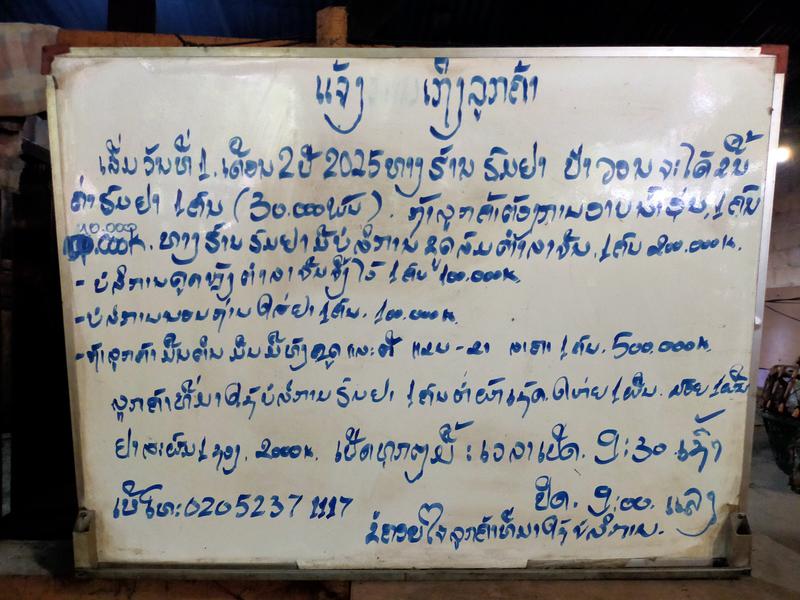 ແຈ້ງ ເຖິງລູກຄ້າ
ເລີ່ມວັນທີ່ 1. ເດືອນ 2 ປີ 2025 ທາງຮ້ານ ຮົມຢາ ປ້າວອນ ຈະໄດ້ຂຶ້ນ
ຄ່າຮົມຢາ 1 ຄົນ (30.000ພັນ). ຖ້າລູກຄ້າຕ້ອງການອາບນ້ຳອຸ່ນ, 1 ຄົນ
10.000
ກ. ທາງຮ້ານຮົມຢາມີບໍລິການ ດູດລົມຕ່ຳລາຊັນ, 1 ຄົນ 200.000ກ.
- ບໍລິການດູດ ຕ່ຳລາຊັນ 1 ຄົນ 100.000ກ.
- ບໍລິການນອນຖ່ານໃສ່ຢາ 1 ຄົນ. 100.000ກ.
- ຖ້າລູກຄ້າ ມືນຕີນ ມືນມືທັງດູດ ແລະ ຕີ ແຂນ - ຂາ ເອກາ 1 ຄົນ. 500.000ກ.
ລູກຄ້າທີ່ມາໃຊ້ບໍລິການຮົມຢາ 1 ຄົນຕໍ່ຜ້າເຊັດ. ໃຫຍ່ 1 ຜືນ. ນ້ອຍ 1 ຜືນ
ຢາສະຜົມ 1 ຊອງ. 2000ກ. ເປີດທຸກໆມື້ : ເວລາເປີດ. 9:30 ເຊົ້າ
ເບີໂທ: 0205237 1117 ປິດ. 9:00. ແລງ
ຂໍຂອບໃຈລູກຄ້າທີ່ມາໃຊ້ບໍລິການ.